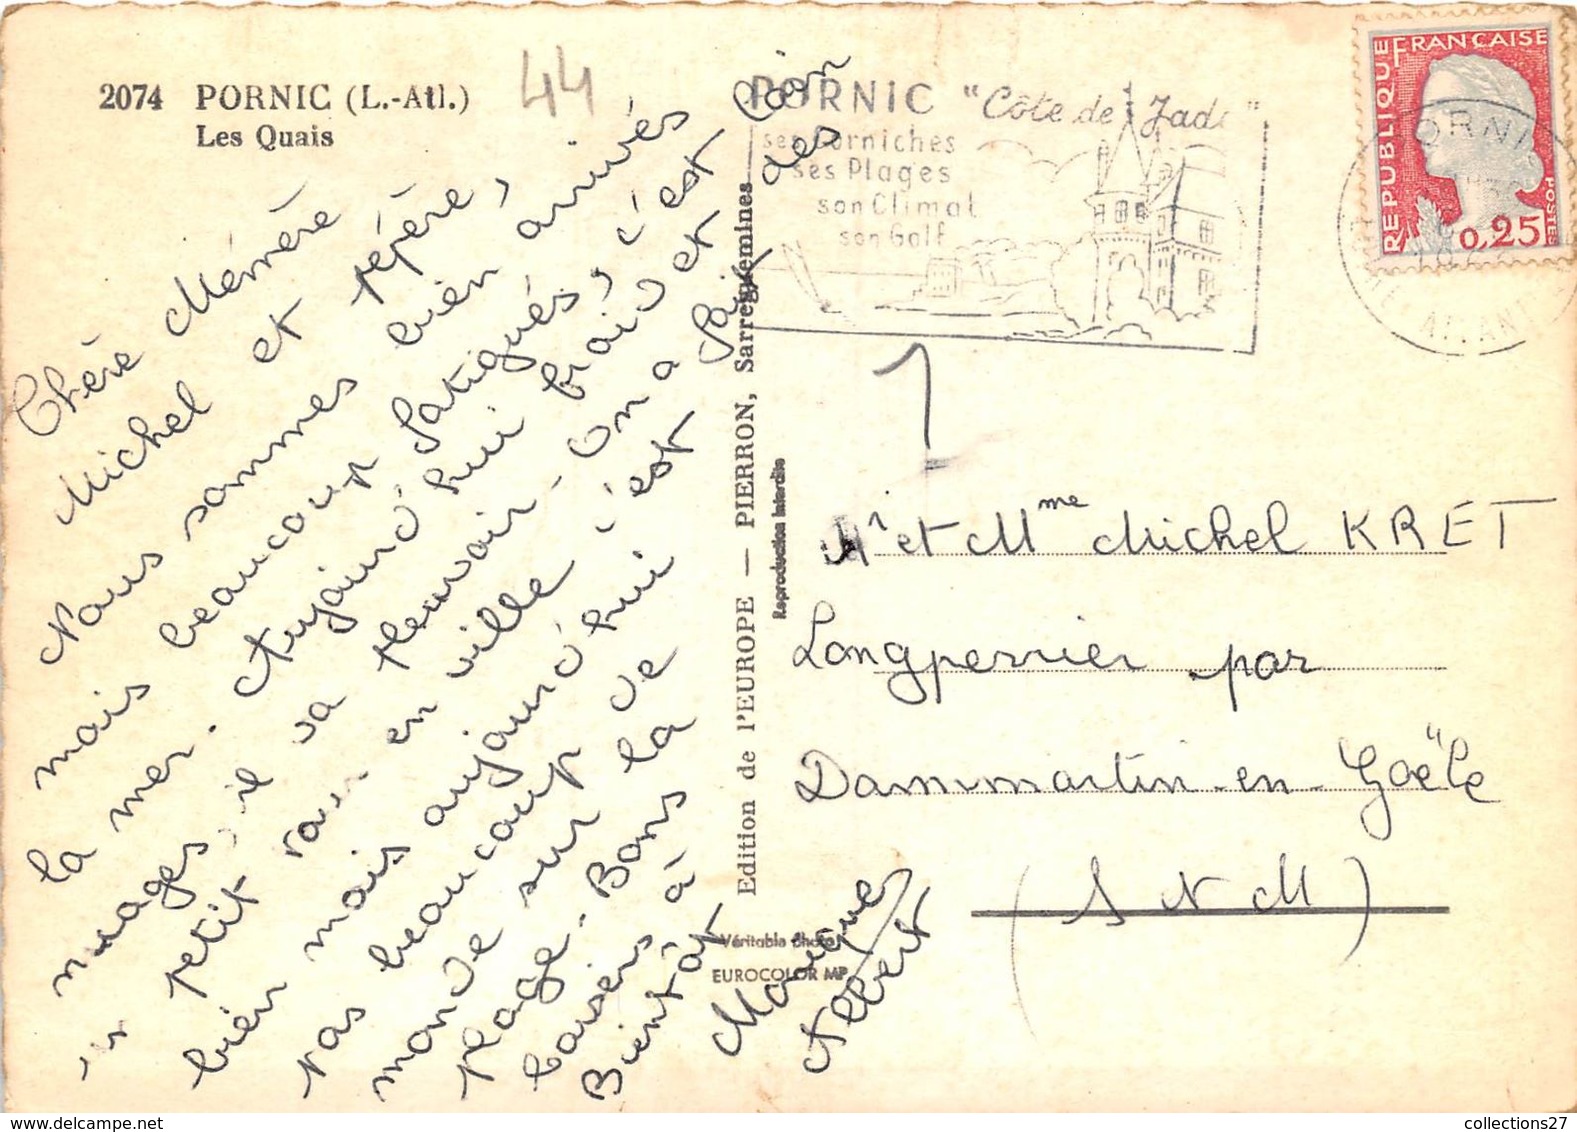 2074 PORNIC (L.-Atl.)
Les Quais
44
PORNIC "Côte de Jade"
ses Corniches
ses Plages
son Climat
son Golf
REPUBLIQUE FRANÇAISE
POSTES
0,25
PORNIC
Chère Mémère
Michel et pépère,
Nous sommes bien arrivés
mais beaucoup fatigués, c'est loin
la mer. Aujourd'hui frais et des
nuages, il va pleuvoir - On a fait
un petit tour en ville c'est
bien mais aujourd'hui
pas beaucoup de
monde sur la
plage. Bons
baisers à
Bientôt
Monique
Albert
Edition de l'EUROPE — PIERRON, Sarreguemines
Reproduction interdite
Véritable Photo
EUROCOLOR MP
1
Mr et Mme Michel KRET
Longperrier par
Dammartin-en-Goële
(S N M)
collections27